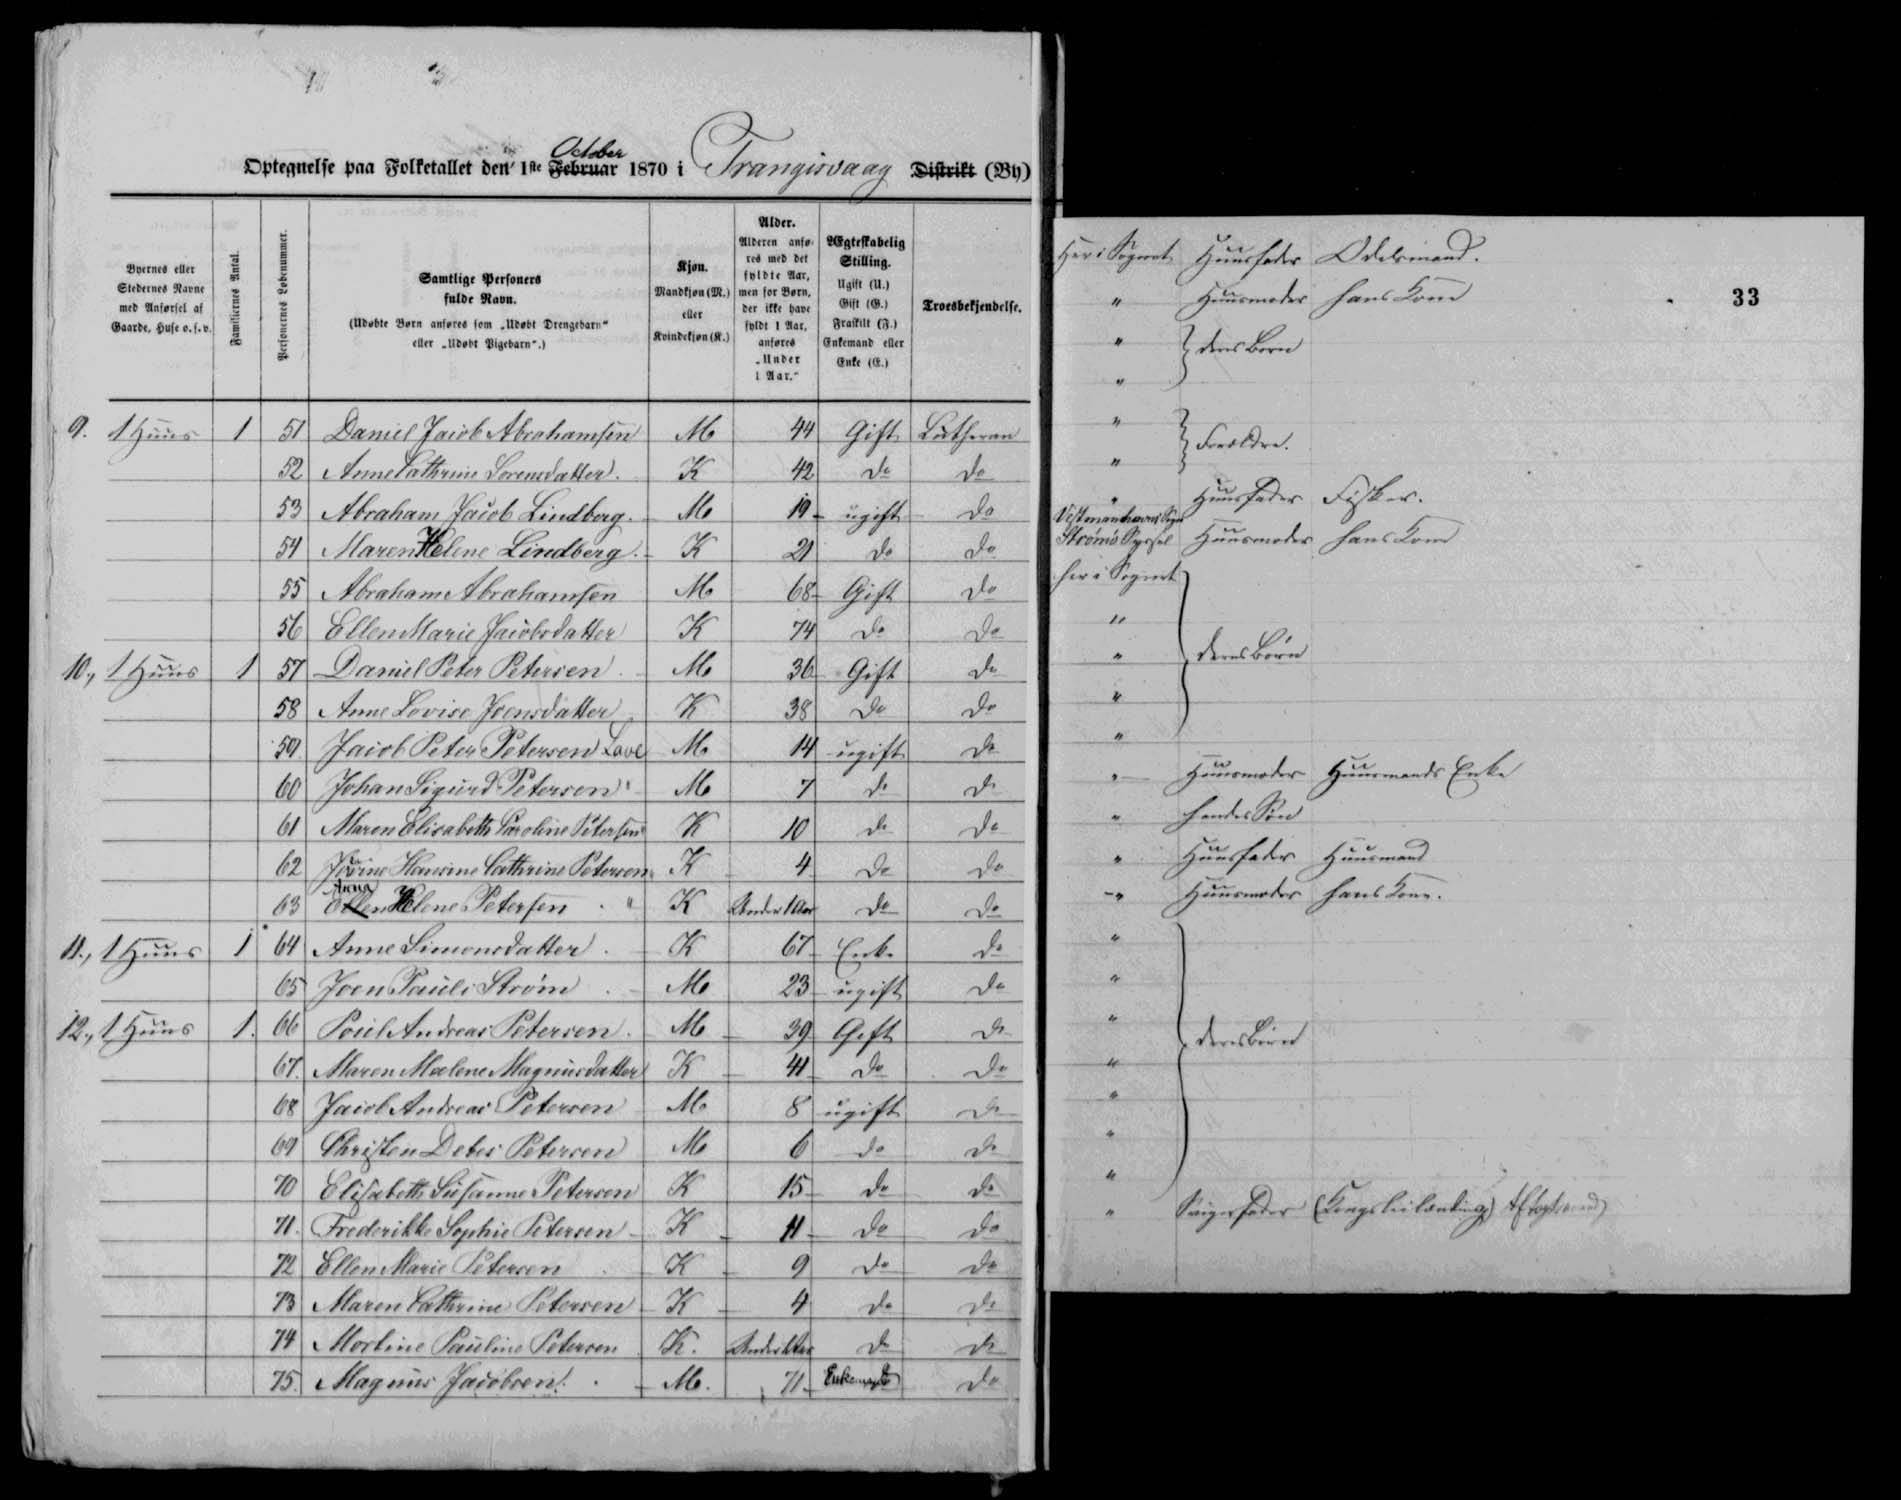 Optegnelse paa Folketallet den 1ste Februar October 1870 i Trangisvaag Distrikt (By)
Byernes eller Stedernes Navne med Anførsel af Gaarde, Huse o. s. v.
Familiernes Antal.
Personernes Løbenummer.
Samtlige Personers fulde Navn.
(Udøbte Børn anføres som „Udøbt Drengebarn“ eller „Udøbt Pigebarn“.)
Kjøn.
Mandkjøn (M.) eller Kvindekjøn (K.)
Alder.
Alderen anføres med det fyldte Aar, men for Børn, der ikke have fyldt 1 Aar, anføres „Under 1 Aar.“
Ægteskabelig Stilling.
Ugift (U.) Gift (G.) Fraskilt (F.) Enkemand eller Enke (E.)
Troesbekjendelse.
9. 1 Huus 1 51 Daniel Jacob Abrahamsen M 44 Gift Lutheran
52 Anne Cathrine Sorensdatter. K 42 do do
53 Abraham Jacob Lindberg. M 19 ugift do
54 Maren Helene Lindberg. K 21 do do
55 Abraham Abrahamsen M 68 Gift do
56 Ellen Marie Jacobsdatter K 74 do do
10., 1 Huus 1 57 Daniel Peter Petersen M 36 Gift do
58 Anne Lovise Joensdatter K 38 do do
59. Jacob Peter Petersen Lave M 14 ugift do
60 Johan Sigurd Petersen " M 7 do do
61 Maren Elisabeth Caroline Petersen K 10 do do
62 Hansine Cathrine Petersen K 4 do do
63 Ellen Anna Helene Petersen " K Under 1 Aar do do
11., 1 Huus 1 64 Anne Simonsdatter K 67 Enke do
65 Joen Pauli Strøm M 23 ugift do
12., 1 Huus 1. 66 Poul Andreas Petersen. M 39 Gift do
67. Maren Malene Magnusdatter K 41 do do
68 Jacob Andreas Petersen M 8 ugift do
69 Christen Debes Petersen M 6 do do
70 Elisabeth Susanne Petersen K 15 do do
71. Frederikke Sophie Petersen K 11 do do
72 Ellen Marie Petersen K 9 do do
73 Maren Cathrine Petersen K 4 do do
74 Mortine Pauline Petersen K. Under 1 Aar do do
75. Magnus Jacobsen. M. 71 Enkemand do
33
Her i Sognet Huusfader Odelsmand.
" Huusmoder hans Kone
" deres Børn
"
"
" Forældre.
" Huusfader Fisker.
Vestmanhavns Sogn Strømø Syssel Huusmoder hans Kone
her i Sognet
"
" deres Børn
"
"
" Huusmoder Huusmands Enke
" hendes Søn
" Huusfader Huusmand
" Huusmoder hans Kone.
"
"
" deres Børn
"
"
"
"
" Svigerfader (Kongsleilænding)